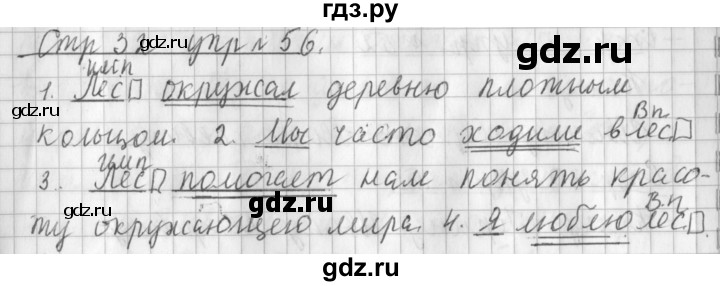 гдз.ру
Стр 32 упр № 56.
имп
1. Лес окружал деревню плотным
Вп
кольцом. 2. Мы часто ходили в лес
имп
3. Лес помогает нам понять красо-
В.п
ту окружающего мира. 4. Я люблю лес.
gdz.ru gdz.ru gdz.ru